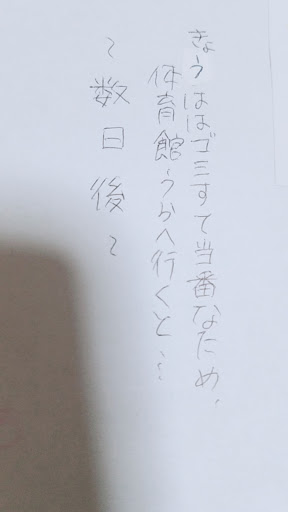 きょうははゴミすて当番なため、
体育館うらへ行くと…
~数日後~